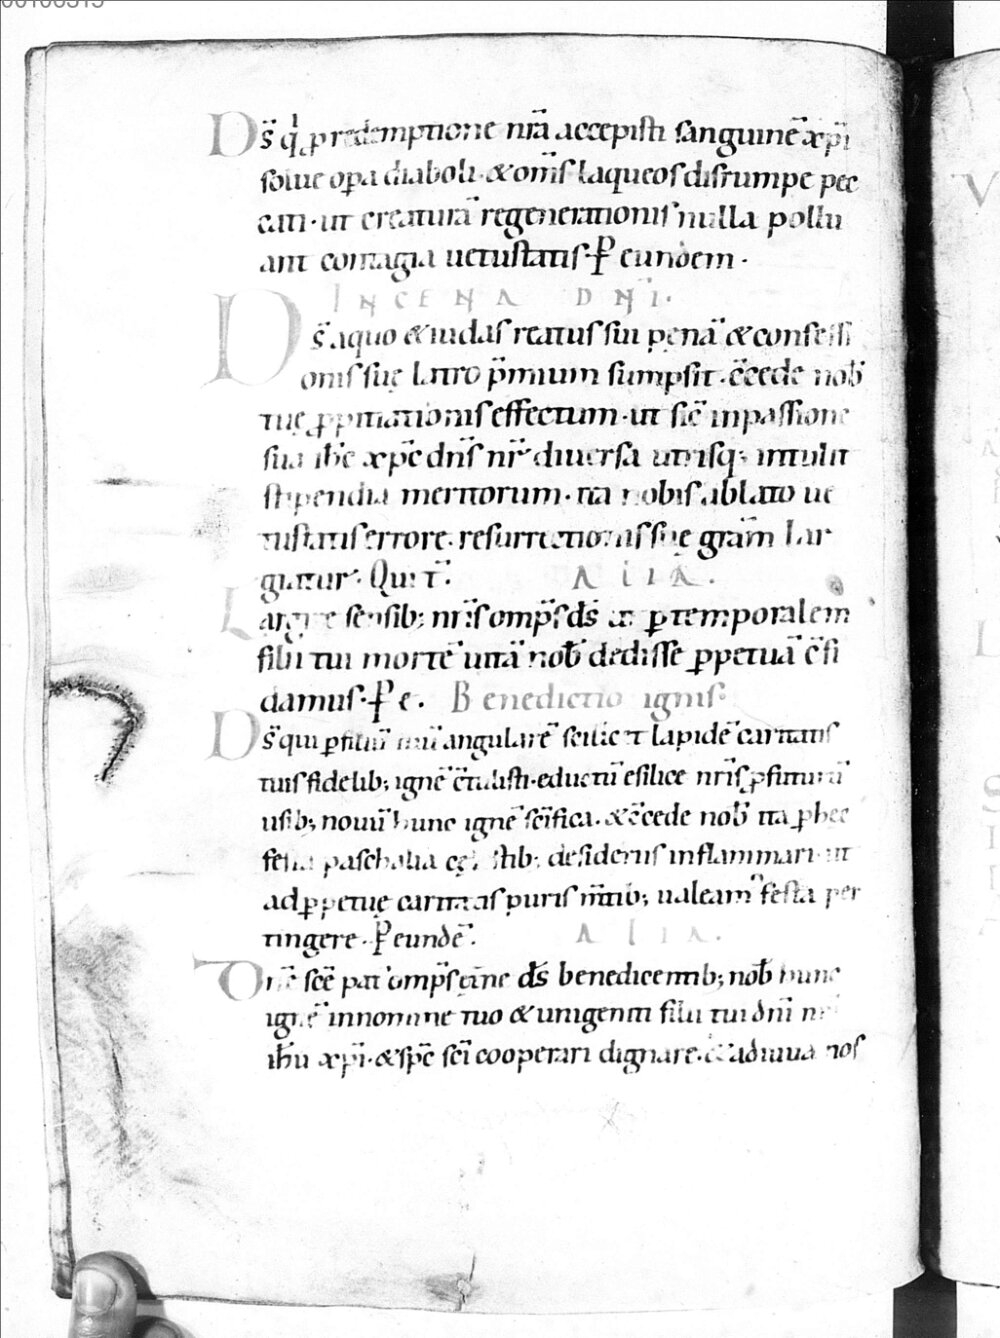 D̄s q̄ p redemptione nr̄a accepisti sanguinē xp̄i
solue opa diaboli · & om̄s laqueos disrumpe pec
cati · ut creaturā regenerationis nulla pollu
ant contagia uetustatis · P eundem ·
IN CENA DN̄I ·
D̄s a quo & iudas reatus sui penā & confessi
onis suę latro p̄mium sumpsit · c̄cede nob̄
tuę ppitiationis effectum · ut sic̄ in passione
sua ih̄c xp̄c dn̄s nr̄ diuersa utrisq; intulit
stipendia meritorum · ita nobis ablato ue
tustatis errore · resurrectionis suę grām lar
giatur · Qui t̄ · ALIA ·
Largire sensib; nr̄is omp̄s d̄s ut p temporalem
filii tui mortē uitā nob̄ dedisse ppetuā c̄fi
damus · P e · Benedictio ignis ·
D̄s qui p filiū tuū angularē scilic& lapidē caritatis
tuis fidelib; ignē c̄tulisti · eductū e silice nr̄is pfuturū
usib; nouū hunc ignē sc̄ifica · & c̄cede nob̄ ita p hec
festa paschalia cęlestib; desideriis inflammari · ut
ad ppetuę caritatis puris m̄tib; ualeam᾽ festa per
tingere · P eundē · ALIA ·
Dn̄e sc̄e pat᾽ omp̄s et̄ne d̄s benedicentib; nob̄ hunc
ignē in nomine tuo & unigeniti filii tui dn̄i nr̄i
ih̄u xp̄i · & sp̄c sc̄i cooperari dignare · & adiuua nos